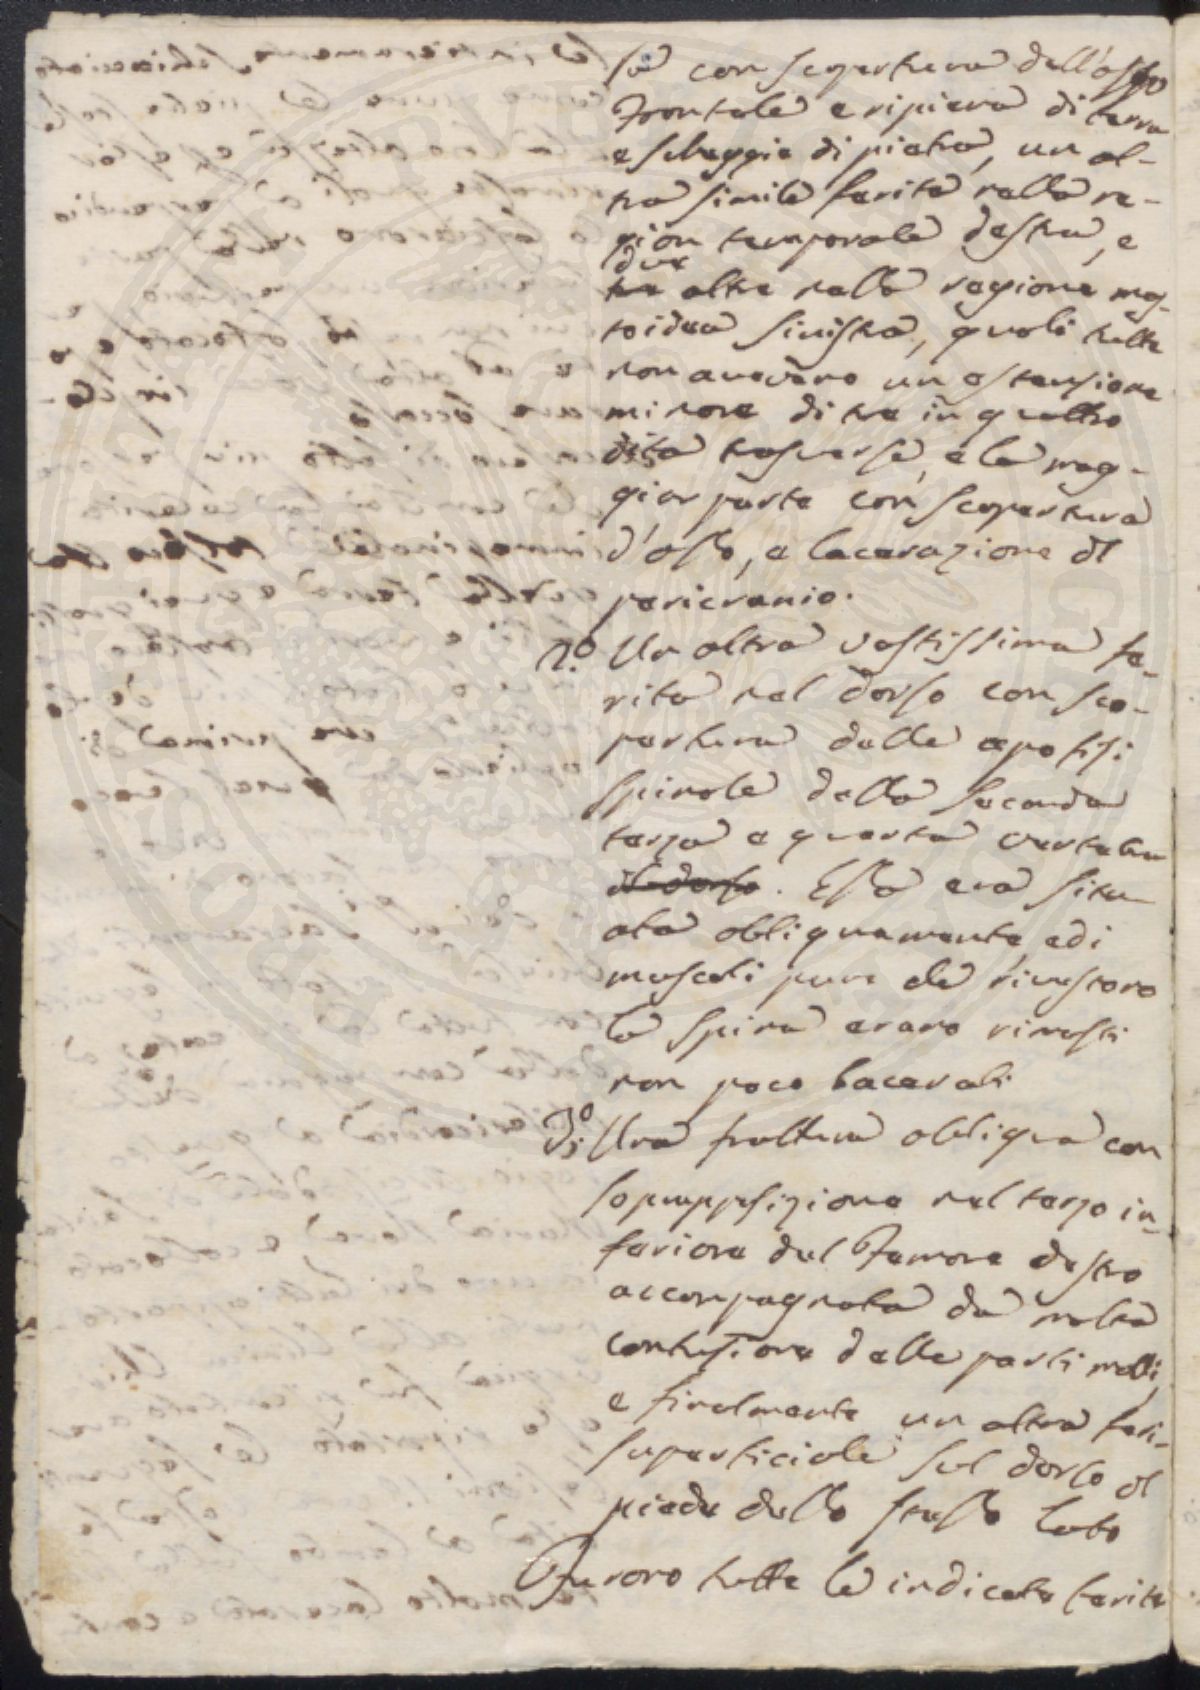 sa con scopertura dell'osso
Frontale e ripiena di terra
e schegge di pietra, un al-
tra simile ferita nella re-
gion temporale destra, e
due
tre altre nella regione mas-
toidea sinistra, quali tutte
non avevano un estensione
minore di tre in quattro
dita trasverse, e la mag-
gior parte con scopertura
d'osso, e lacerazione del
pericranio.
2.º Un altra vastissima fe-
rita nel dorso con sco-
pertura delle apofisi
spinale della seconda
terza e quarta vertebra
del dorso. Essa era situ-
ata obliquamente, ed i
muscoli pure che rivestono
la spina erano rimasti
non poco lacerati
3.º Una frattura obliqua con
soprapposizione nel terzo in-
feriore del Femore destro
accompagnata da molta
contusione delle parti molli,
e finalmente un altra feri-
superficiale sul dorso del
piede dello stesso lato
Furono tutte le indicate ferite